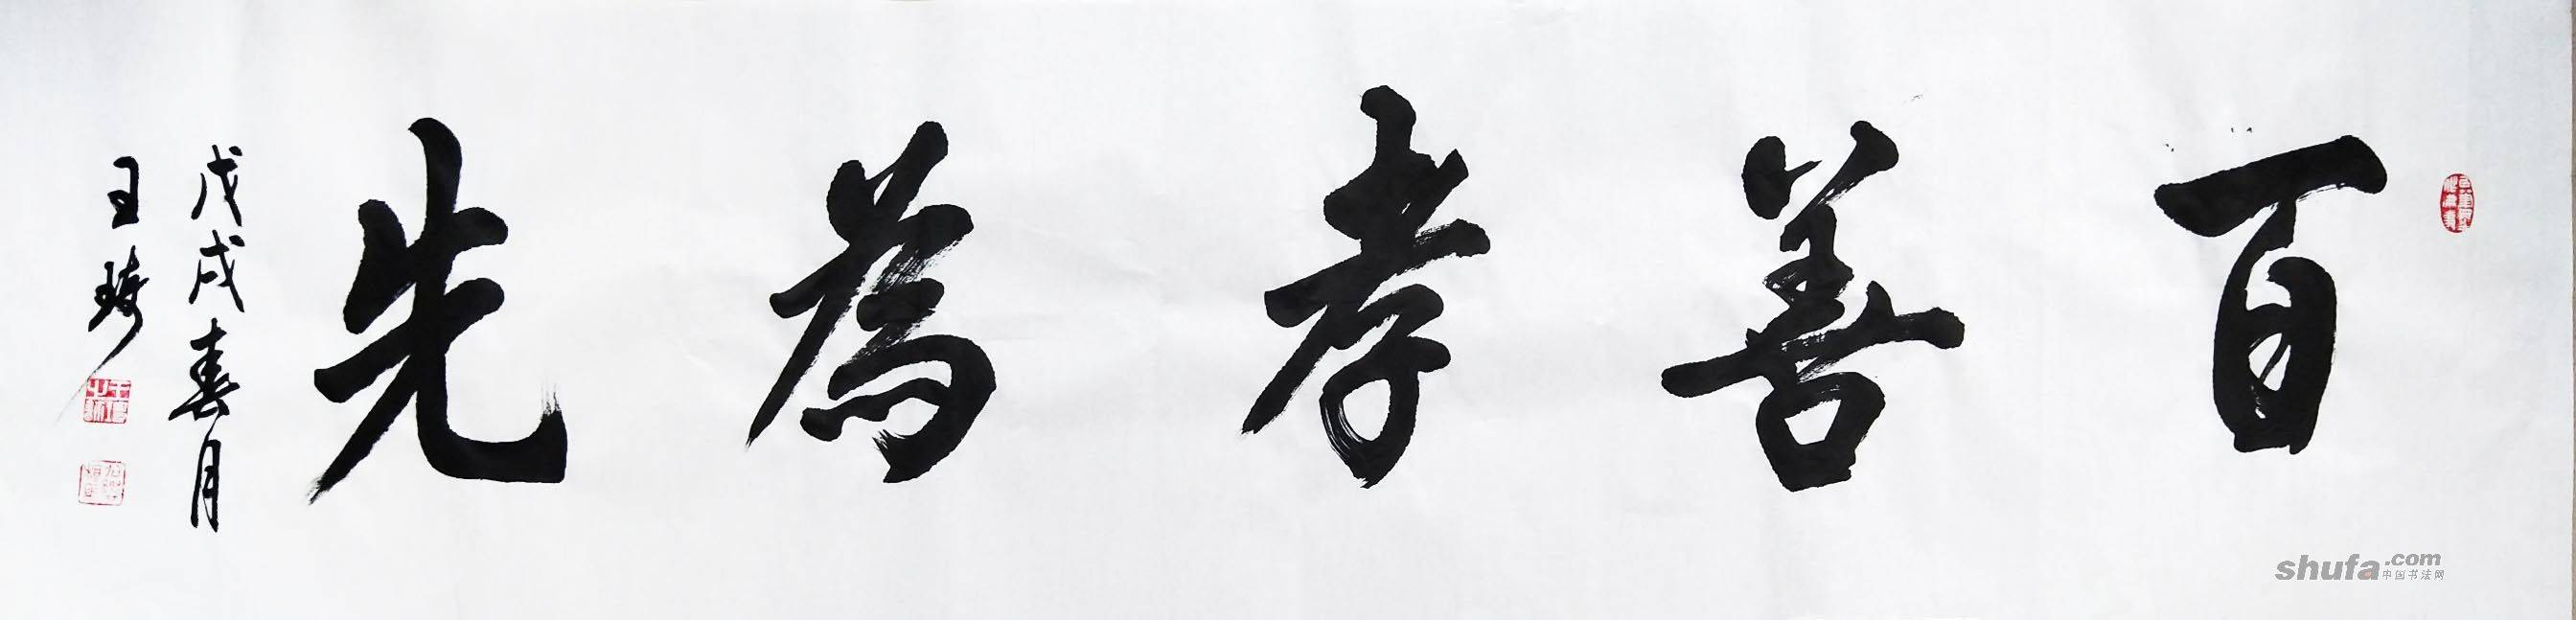 百善孝為先
戊戌春月
王琦
shufa.com
中国书法网